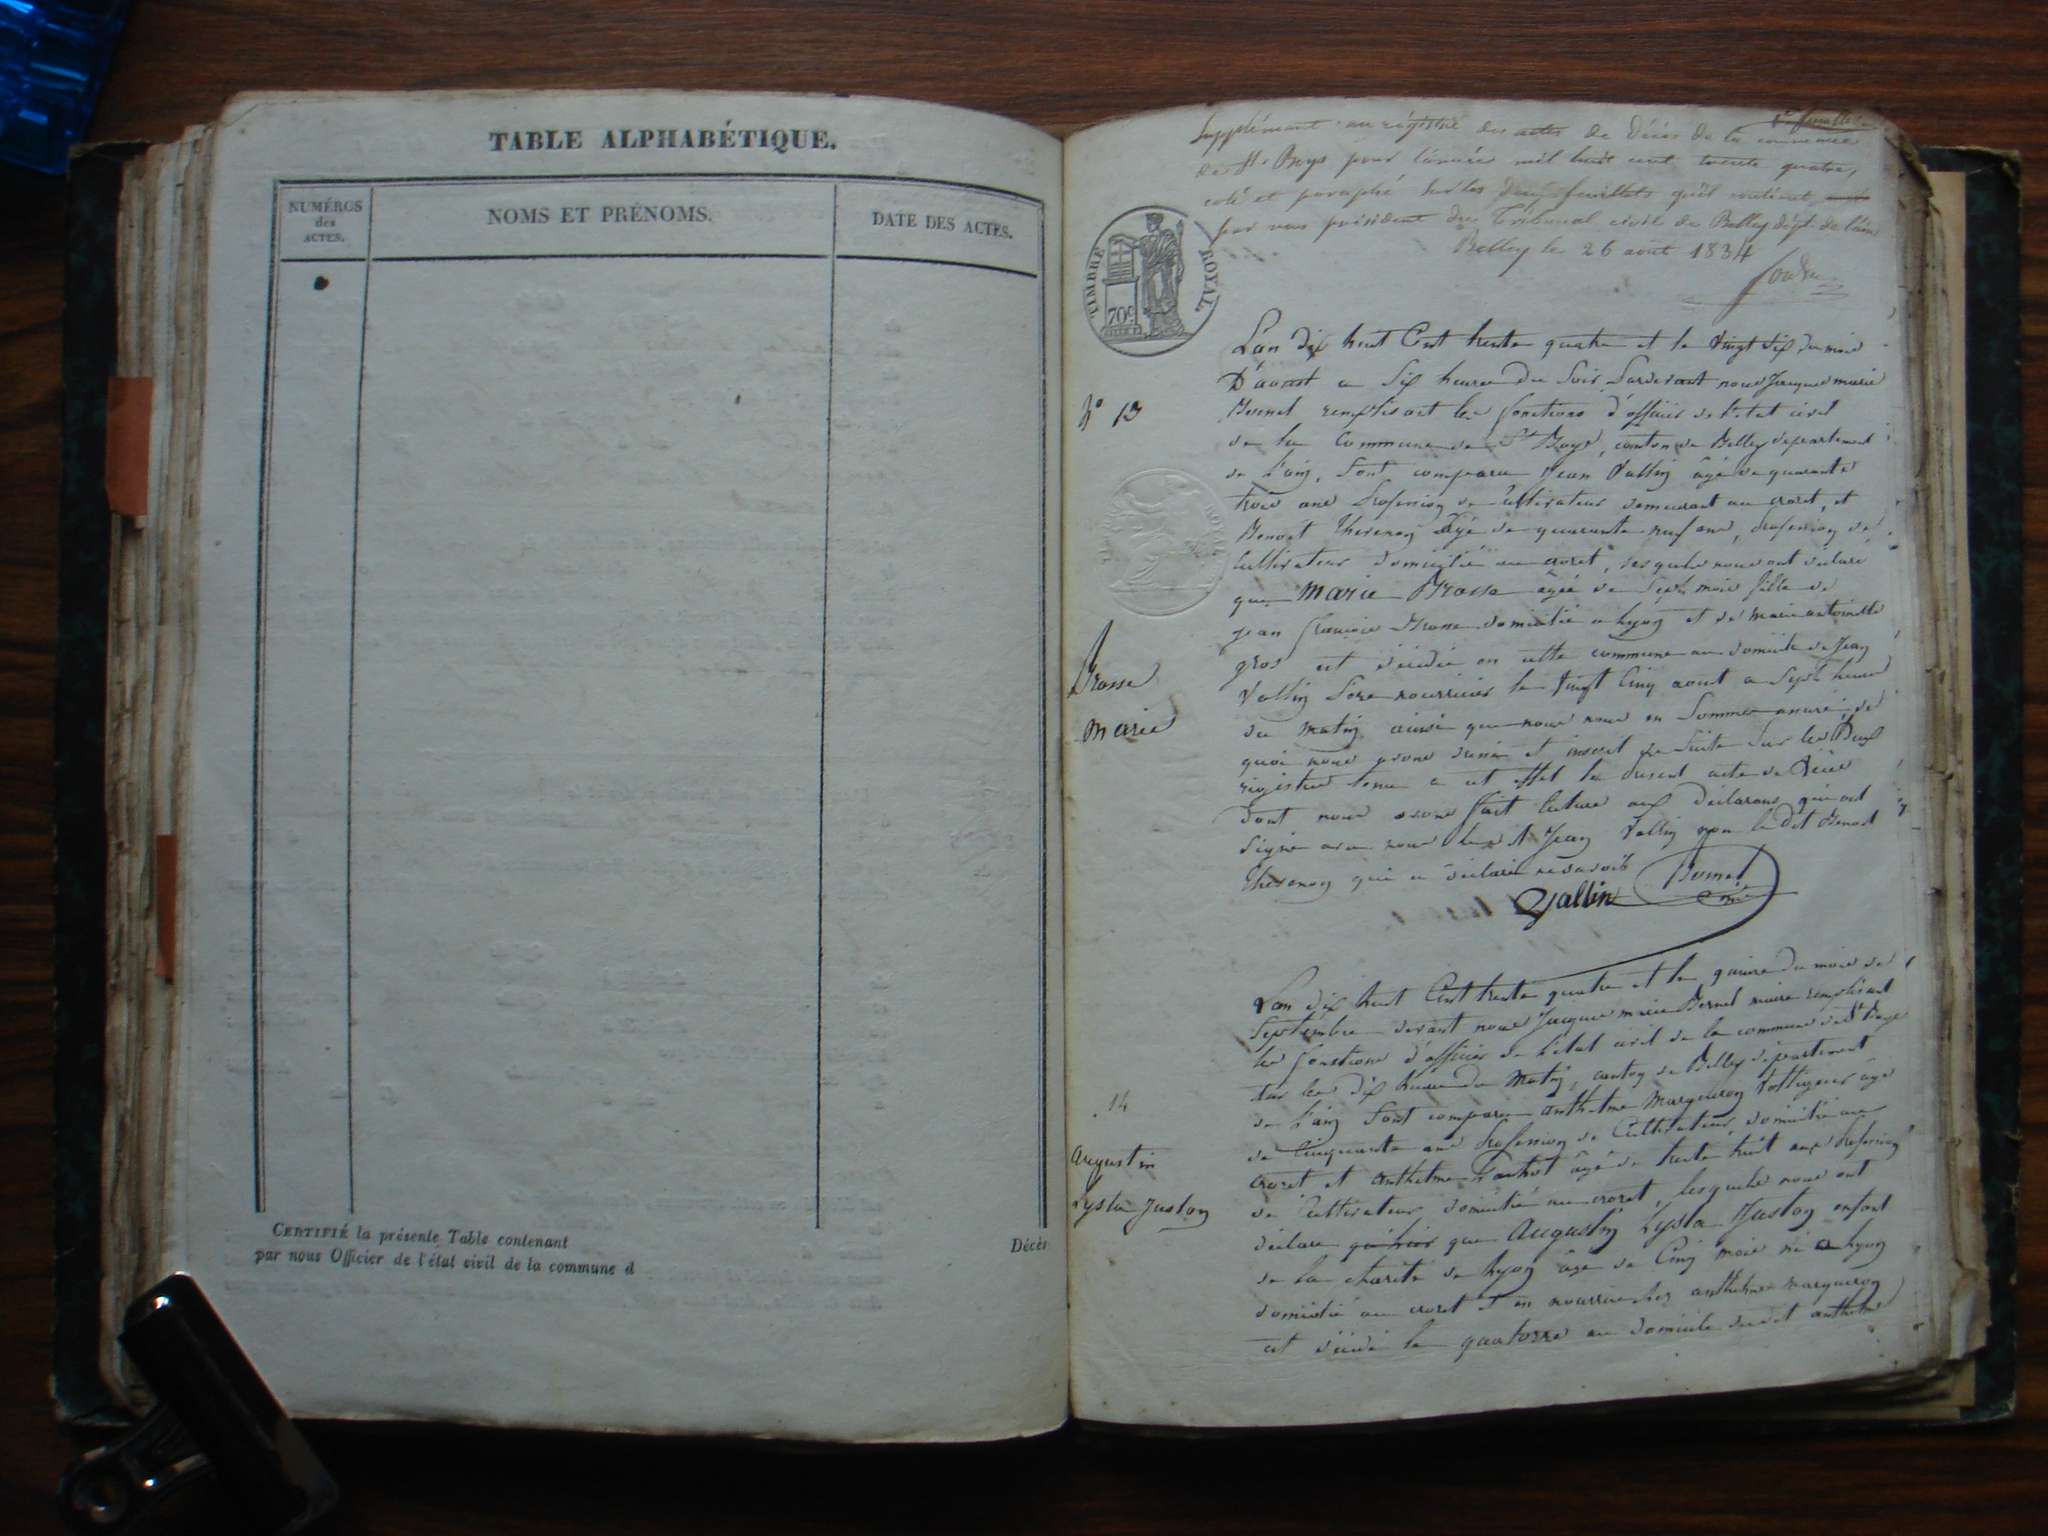 TABLE ALPHABÉTIQUE.
NUMÉROS
des
ACTES.
NOMS ET PRÉNOMS.
DATE DES ACTES.
CERTIFIÉ la présente Table contenant
par nous Officier de l'état civil de la commune d
Décès
Supplément au régistre des actes de décès de la commune
de St Boys pour l'année mil huit cent trente quatre,
coté et paraphé sur les deux feuillets qu'il contient
par nous président du Tribunal civil de Belley dépt. de l'ain
Belley le 26 aout 1834
TIMBRE ROYAL
70 c
L'an dix huit Cent trente quatre et le Vingt Six du mois
D'avout a Six heures du Soir Pardevant nous Jacques marie
remplisant les fonctions d'officier de l'etat civil
de la Commune de St Boys, canton de Belley departement
de l'ain, Sont comparu Jean Vallin âgé de quarante
trois ans Profession de Cultivateur demeurant au croret, et
Benoit Thevenon âgé de quarante neuf ans, profession de
Cultivateur domicilié au croret, lesquels nous ont déclaré
que Marie Brosse âgée de Sept mois fille de
jean françois Brosse domicilié a Lyon et de Marie antoinette
gros est décédée en cette commune au domicile de Jean
Vallin Père nourricier le Vingt Cinq aout a Sept heures
du Matin ainsi que nous nous en Sommes assuré, de
quoi nous avons dressé et inscrit de Suite Sur les Deux
registres tenus a cet effet le présent acte de Décès
Dont nous avons fait lecture aux déclarans qui ont
Signé avec nous le dt Jean Vallin non le dit Benoit
Thevenon qui a déclaré ne savoir
Vallin
N° 13
Brosse
Marie
L'an dix huit Cent trente quatre et le quinze du mois de
Septembre devant nous Jacques marie maire remplisant
les fonctions d'officier de l'état civil de la commune de St Boys
sur les dix heures du Matin, canton de Belley département
de l'ain Sont comparu anthelme Marqueron Voltigeur âgé
de Cinquante ans Profession de Cultivateur domicilié au
croret et anthelme âgé de trente huit ans profession
de Cultivateur domicilié au croret, lesquels nous ont
déclaré que Augustin Lysla Juston enfant
de la charité de Lyon âgé de Cinq mois né a Lyon
domicilié au croret et en nourrice chez anthelme marqueron
est décédé le quatorze au domicile dudit anthelme
14
Augustin
Lysla Juston